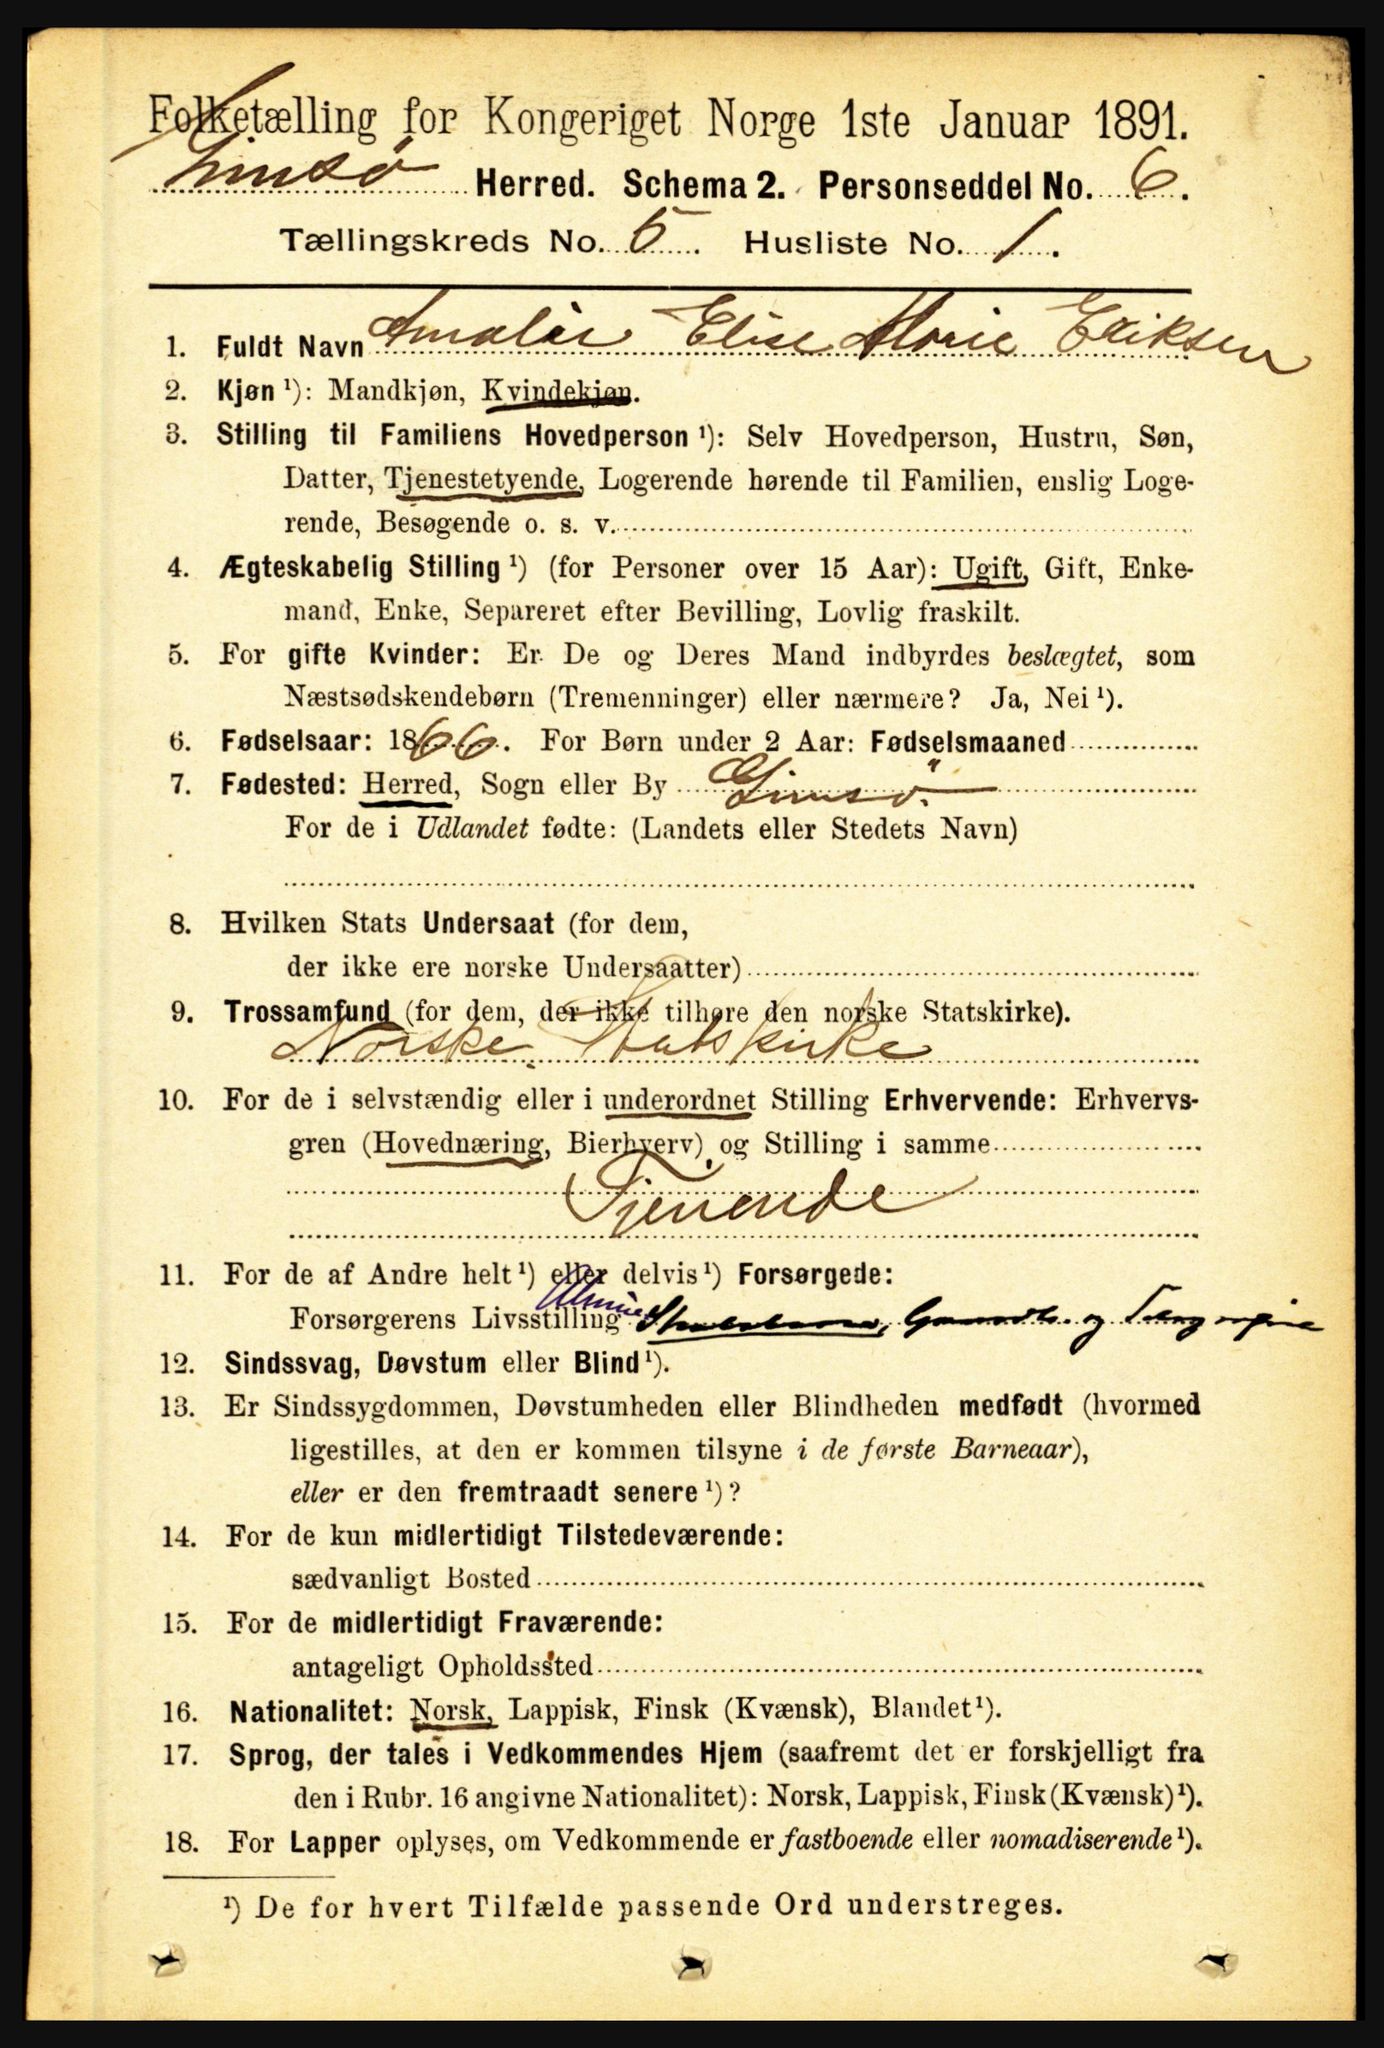 Folketælling for Kongeriget Norge 1ste Januar 1891.
Gimsø Herred. Schema 2. Personseddel No. 6.
Tællingskreds No. 5. Husliste No. 1.
1. Fuldt Navn Amalie Elise Marie Eriksen
2. Kjøn ¹): Mandkjøn, Kvindekjøn.
3. Stilling til Familiens Hovedperson ¹): Selv Hovedperson, Hustru, Søn,
Datter, Tjenestetyende, Logerende hørende til Familien, enslig Loge-
rende, Besøgende o. s. v.
4. Ægteskabelig Stilling ¹) (for Personer over 15 Aar): Ugift, Gift, Enke-
mand, Enke, Separeret efter Bevilling, Lovlig fraskilt.
5. For gifte Kvinder: Er De og Deres Mand indbyrdes beslægtet, som
Næstsødskendebørn (Tremenninger) eller nærmere? Ja, Nei ¹).
6. Fødselsaar: 1866. For Børn under 2 Aar: Fødselsmaaned
7. Fødested: Herred, Sogn eller By Gimsø.
For de i Udlandet fødte: (Landets eller Stedets Navn)
8. Hvilken Stats Undersaat (for dem,
der ikke ere norske Undersaatter)
9. Trossamfund (for dem, der ikke tilhøre den norske Statskirke).
Norske Statskirke
10. For de i selvstændig eller i underordnet Stilling Erhvervende: Erhvervs-
gren (Hovednæring, Bierhverv) og Stilling i samme
Tjenende
11. For de af Andre helt ¹) eller delvis ¹) Forsørgede:
Forsørgerens Livsstilling og
12. Sindssvag, Døvstum eller Blind ¹).
13. Er Sindssygdommen, Døvstumheden eller Blindheden medfødt (hvormed
ligestilles, at den er kommen tilsyne i de første Barneaar),
eller er den fremtraadt senere ¹)?
14. For de kun midlertidigt Tilstedeværende:
sædvanligt Bosted
15. For de midlertidigt Fraværende:
antageligt Opholdssted
16. Nationalitet: Norsk, Lappisk, Finsk (Kvænsk), Blandet ¹).
17. Sprog, der tales i Vedkommendes Hjem (saafremt det er forskjelligt fra
den i Rubr. 16 angivne Nationalitet): Norsk, Lappisk, Finsk (Kvænsk) ¹).
18. For Lapper oplyses, om Vedkommende er fastboende eller nomadiserende ¹).
¹) De for hvert Tilfælde passende Ord understreges.